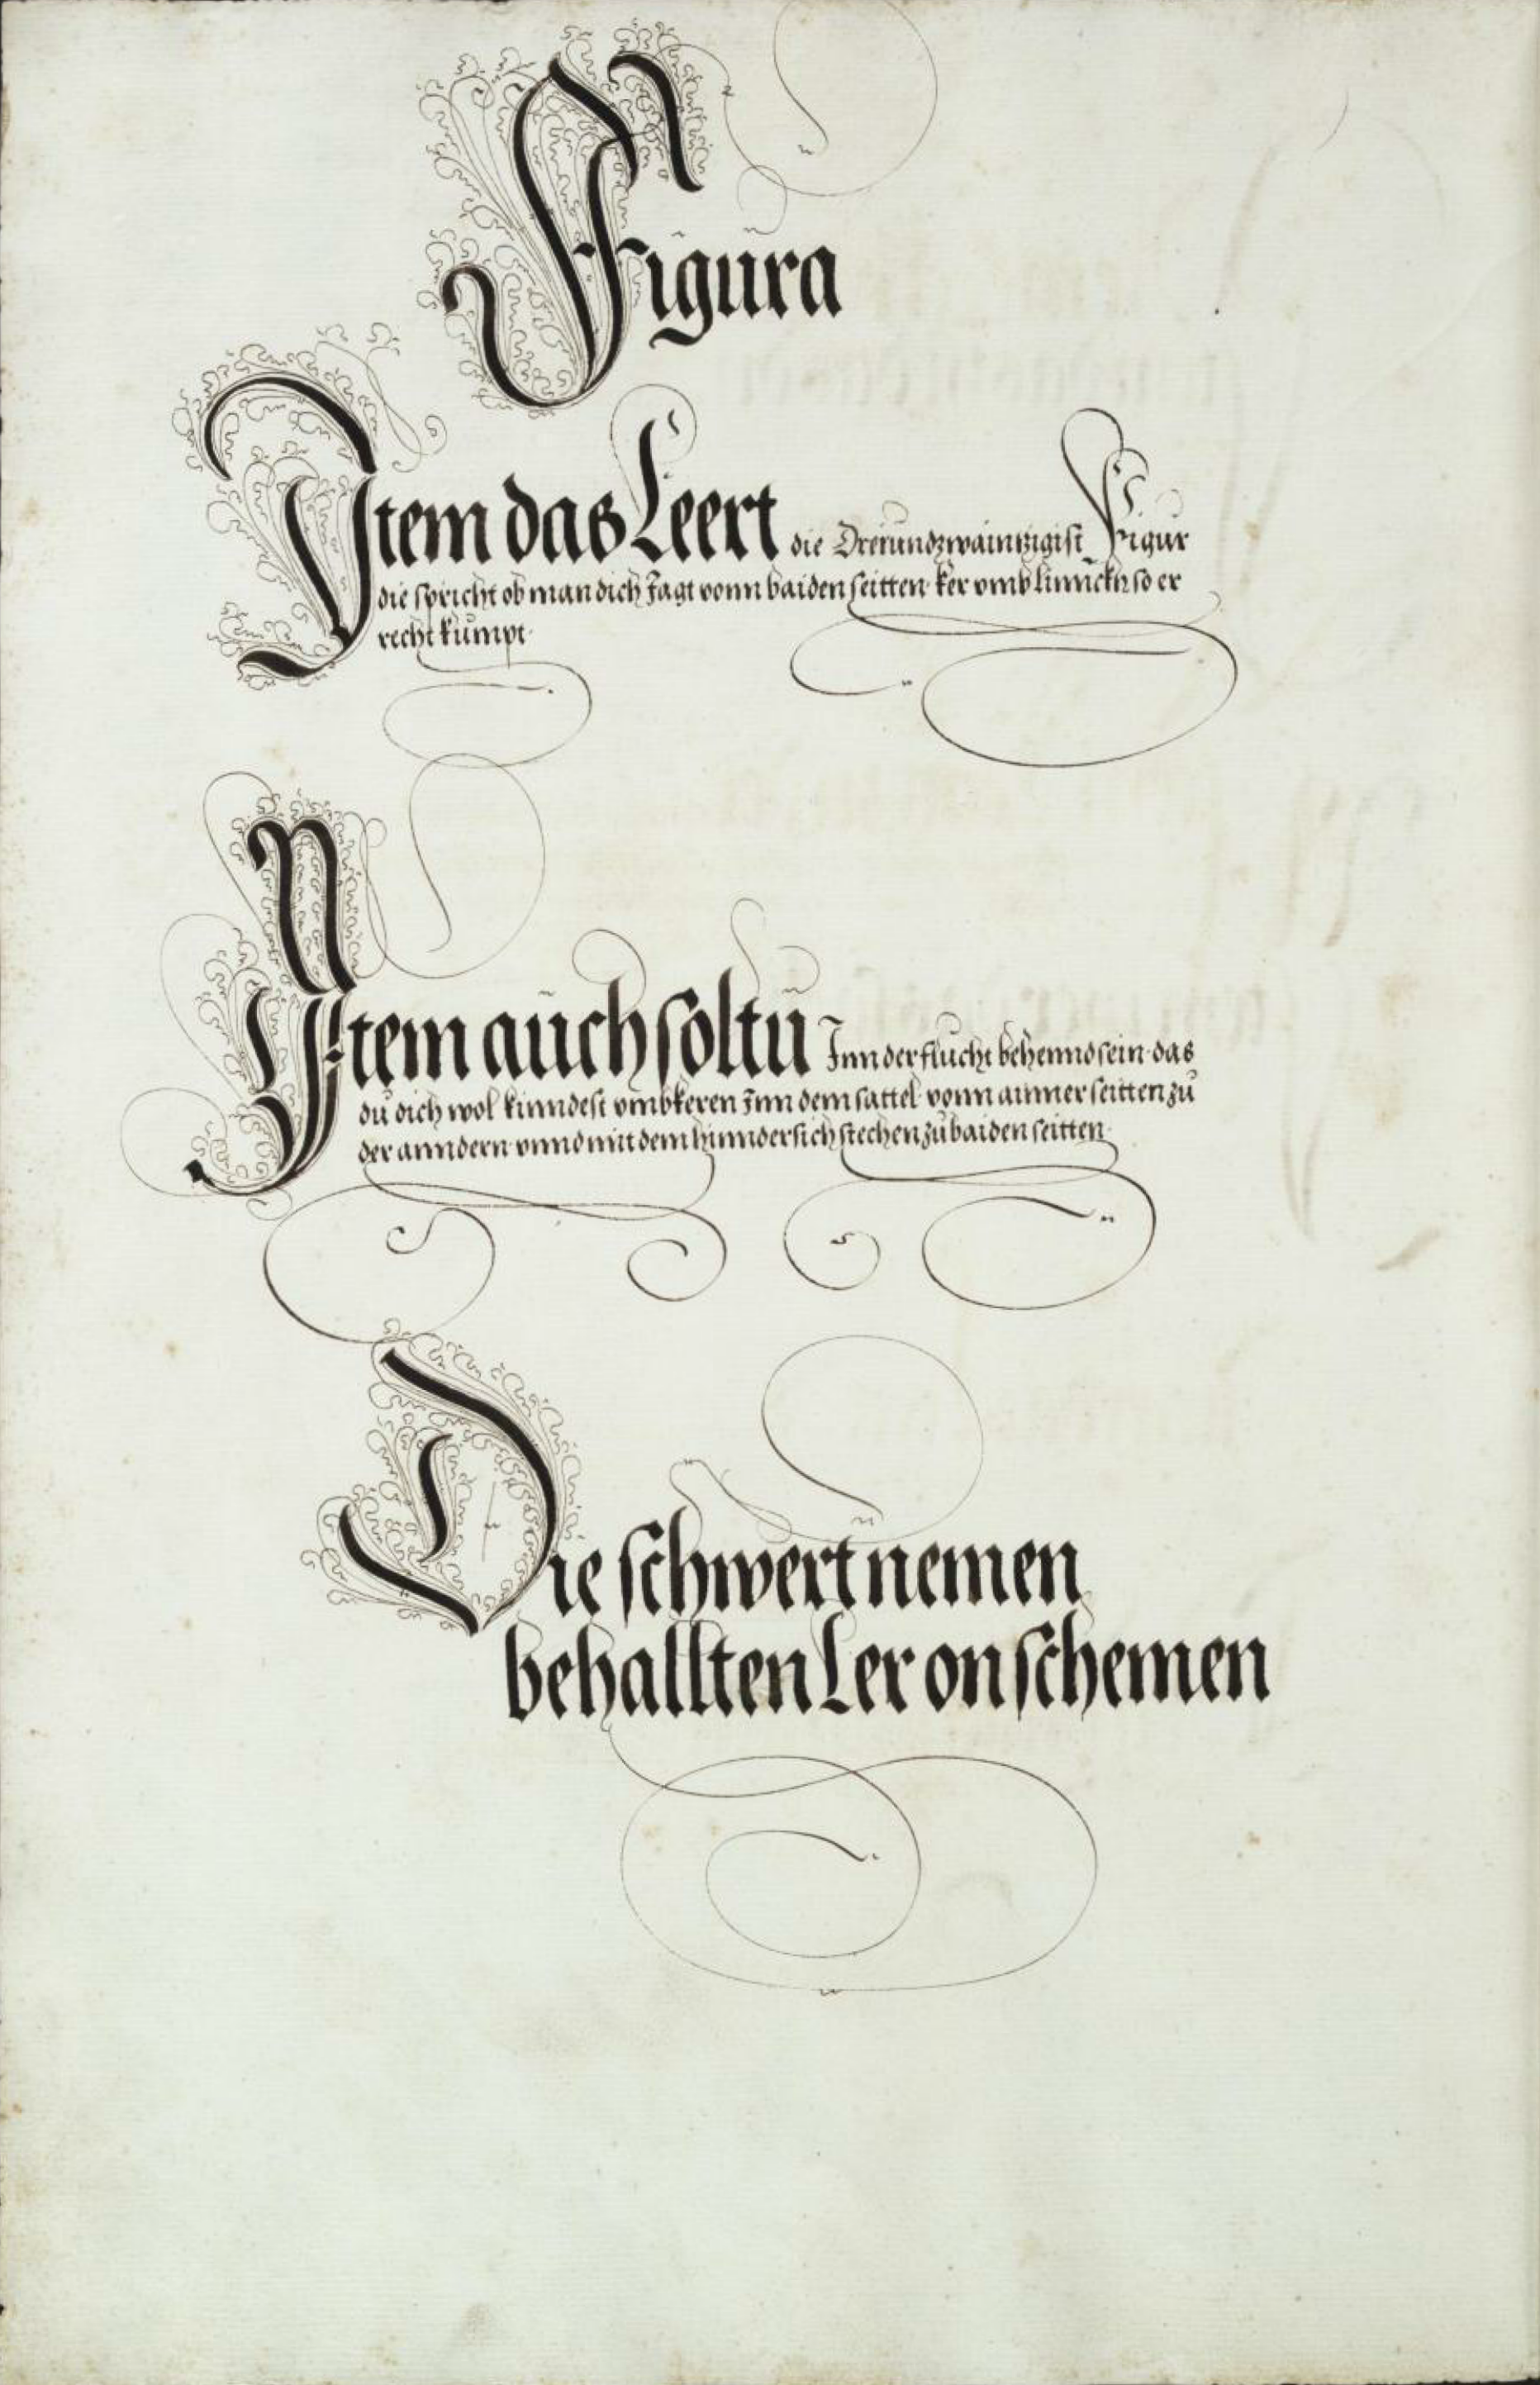 Figura
Item das Leert die Dreiundzwaintzigist Figur
die spricht ob man dich Jagt vonn baiden seitten ker vmb linnckh so er
recht kumpt
Item auch soltu Inn der flucht behennd sein das
du dich wol kinndest vmbkeren Inn dem sattel vonn ainner seitten zu
der anndern vnnd mit dem hinndersich stechen zu baiden seitten
Die schwert nemen
behallten Ler on schemen